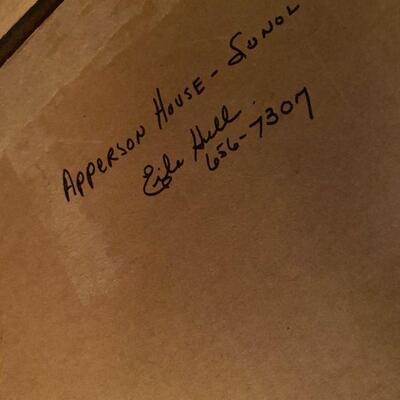 APPERSON HOUSE - SUNOL
Hull
656-7307